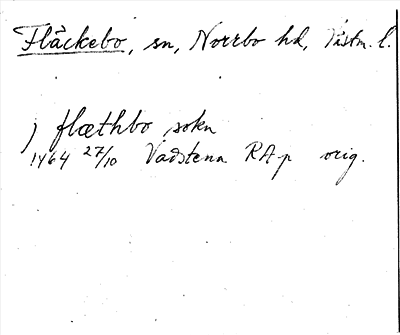 Fläckebo, sn, Norrbo hd, Västm. l.
j flæthbo sokn
1464 27/10 Vadstena RAp orig.